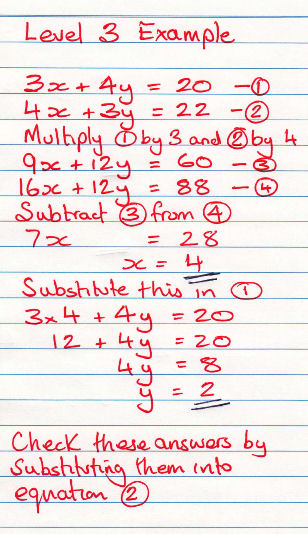 Level 3 Example
3x + 4y = 20 — ①
4x + 3y = 22 — ②
Multiply ① by 3 and ② by 4
9x + 12y = 60 — ③
16x + 12y = 88 — ④
Subtract ③ from ④
7x = 28
x = 4
Substitute this in ①
3×4 + 4y = 20
12 + 4y = 20
4y = 8
y = 2
Check these answers by
Substituting them into
equation ②